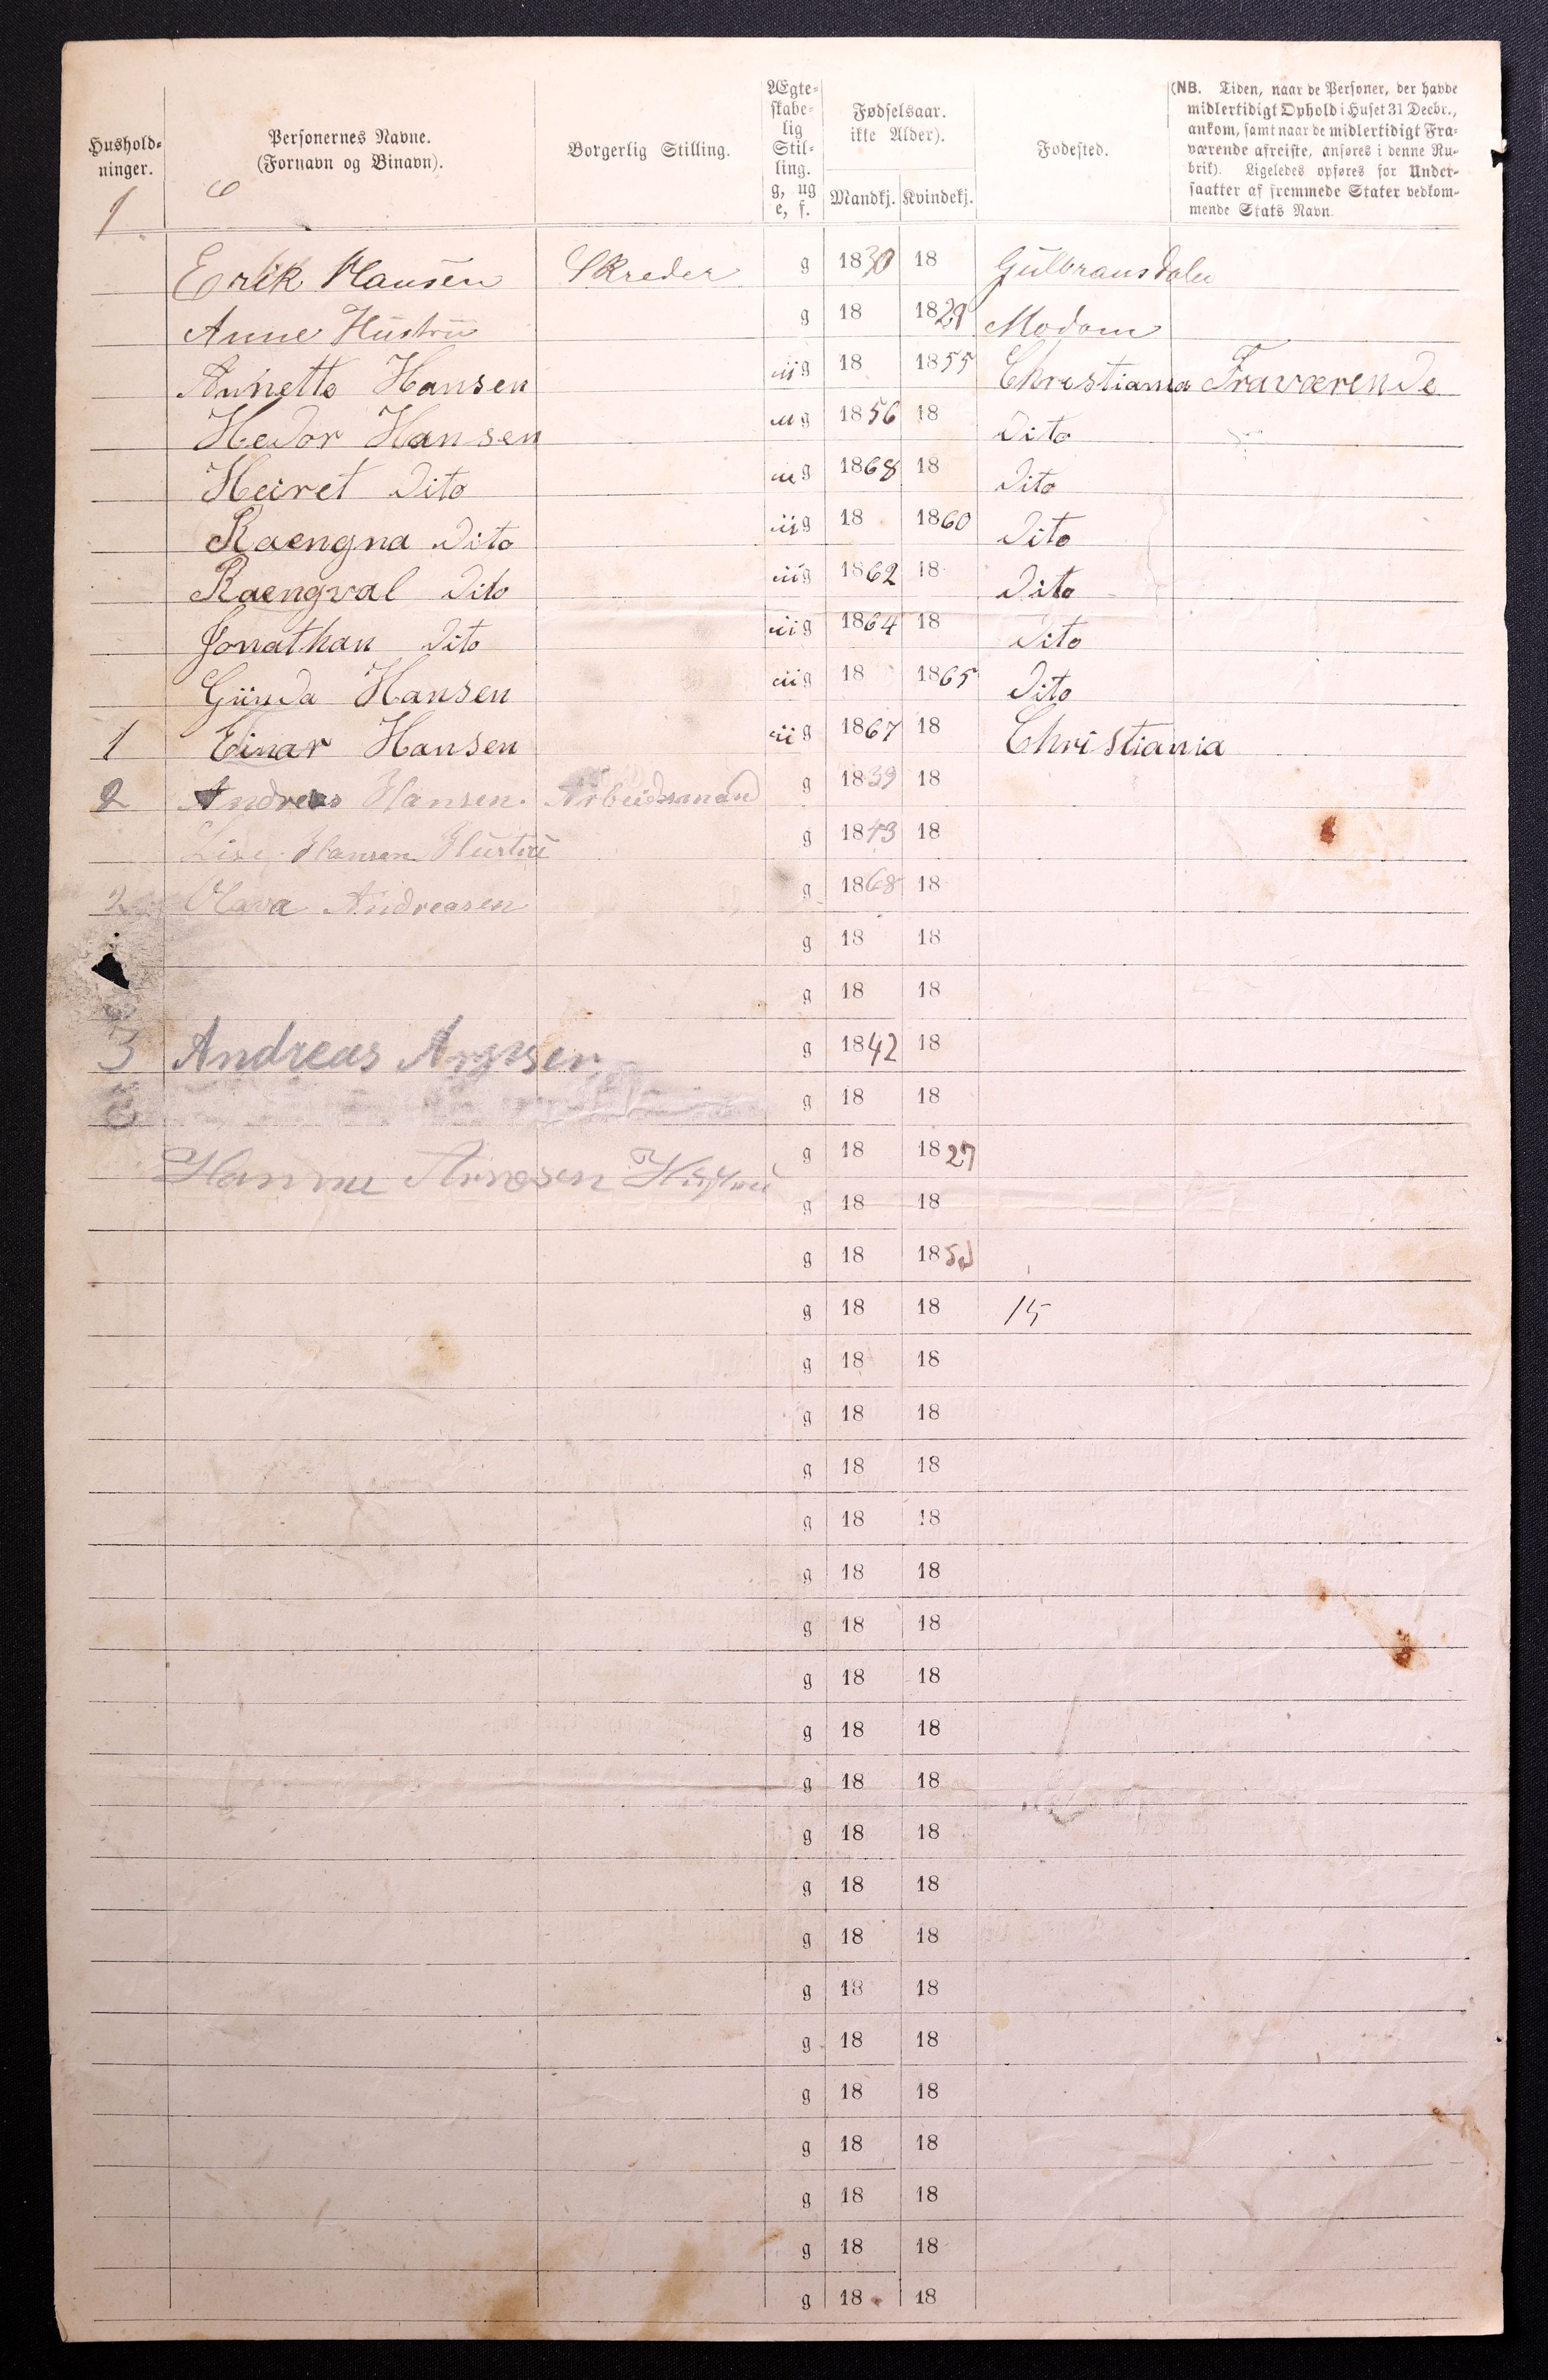 Hushold-
ninger.
Personernes Navne.
(Fornavn og Binavn).
Borgerlig Stilling.
Ægte-
skabe-
lig
Stil-
ling.
g, ug
e, f.
Fødselsaar.
ikke Alder).
Mandkj. Kvindekj.
Fødested.
(NB. Tiden, naar de Personer, der havde
midlertidigt Ophold i Huset 31 Decbr.,
ankom, samt naar de midlertidigt Fra-
værende afreiste, anføres i denne Ru-
brik). Ligeledes opføres for Under-
saatter af fremmede Stater vedkom-
mende Stats Navn.
1
Erik Hansen Skreder g 1830 18 Gulbransdalen
Anne Hustru g 18 1829 Modom
Annette Hansen ug 18 1855 Christiania Fraværende
Hedor Hansen ug 1856 18 Dito
Heiret Dito ug 1868 18 Dito
Raengna Dito ug 18 1860 Dito
Raengval Dito ug 1862 18 Dito
Jonathan Dito ug 1864 18 Dito
Gunda Hansen ug 18 1865 Dito
1 Einar Hansen ug 1867 18 Christiania
2 Andreas Hansen. Arbeidsmand g 1839 18
Lise Hansen Hustru g 1843 18
2 Olava Andreasen g 1868 18
g 18 18
g 18 18
3 Andreas g 1842 18
g 18 18
Hanne Arnesen Hustru g 18 1827
g 18 18
g 18 18
g 18 18 15
g 18 18
g 18 18
g 18 18
g 18 18
g 18 18
g 18 18
g 18 18
g 18 18
g 18 18
g 18 18
g 18 18
g 18 18
g 18 18
g 18 18
g 18 18
g 18 18
g 18 18
g 18 18
g 18 18